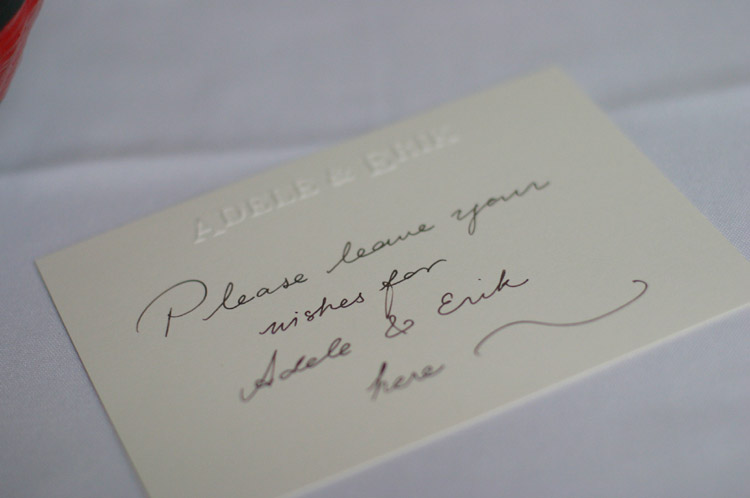 ADELE & ERIK
Please leave your
wishes for
Adele & Erik
here